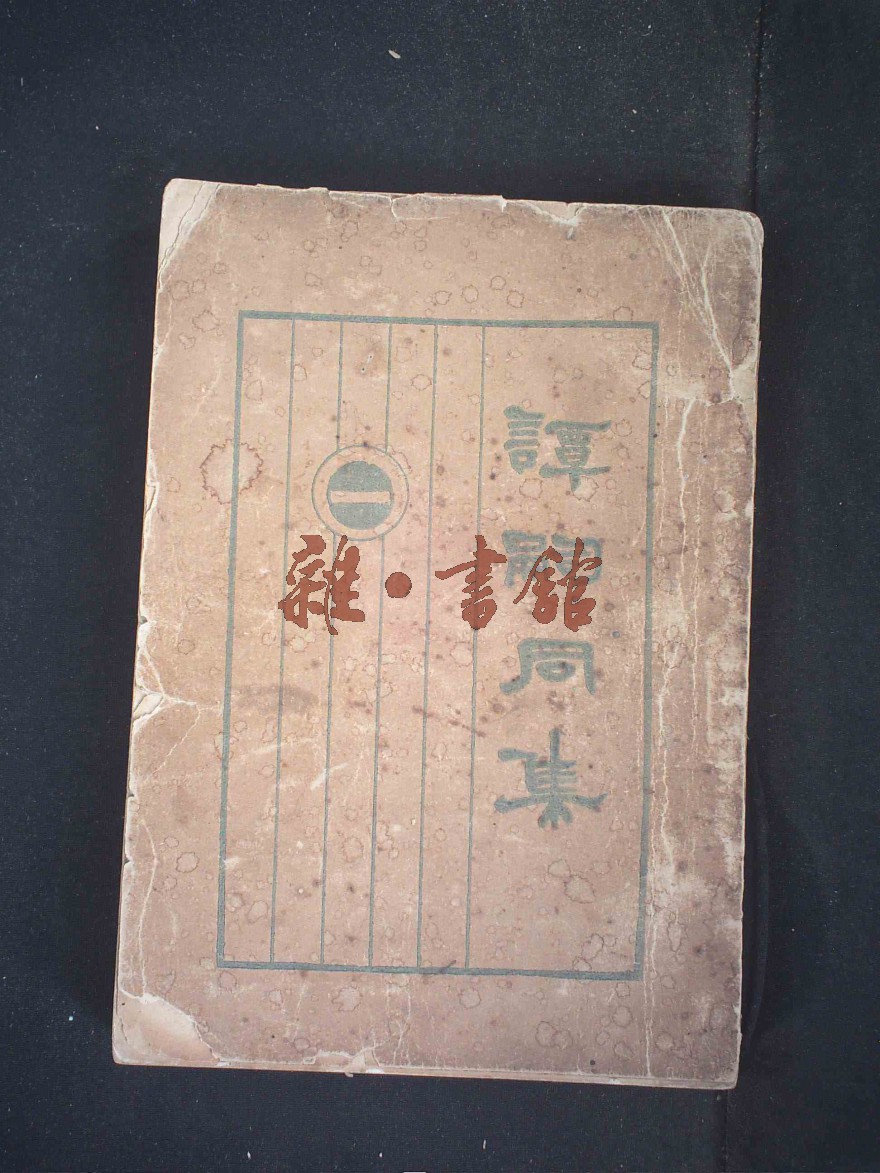 譚嗣同集
一
雜·書館